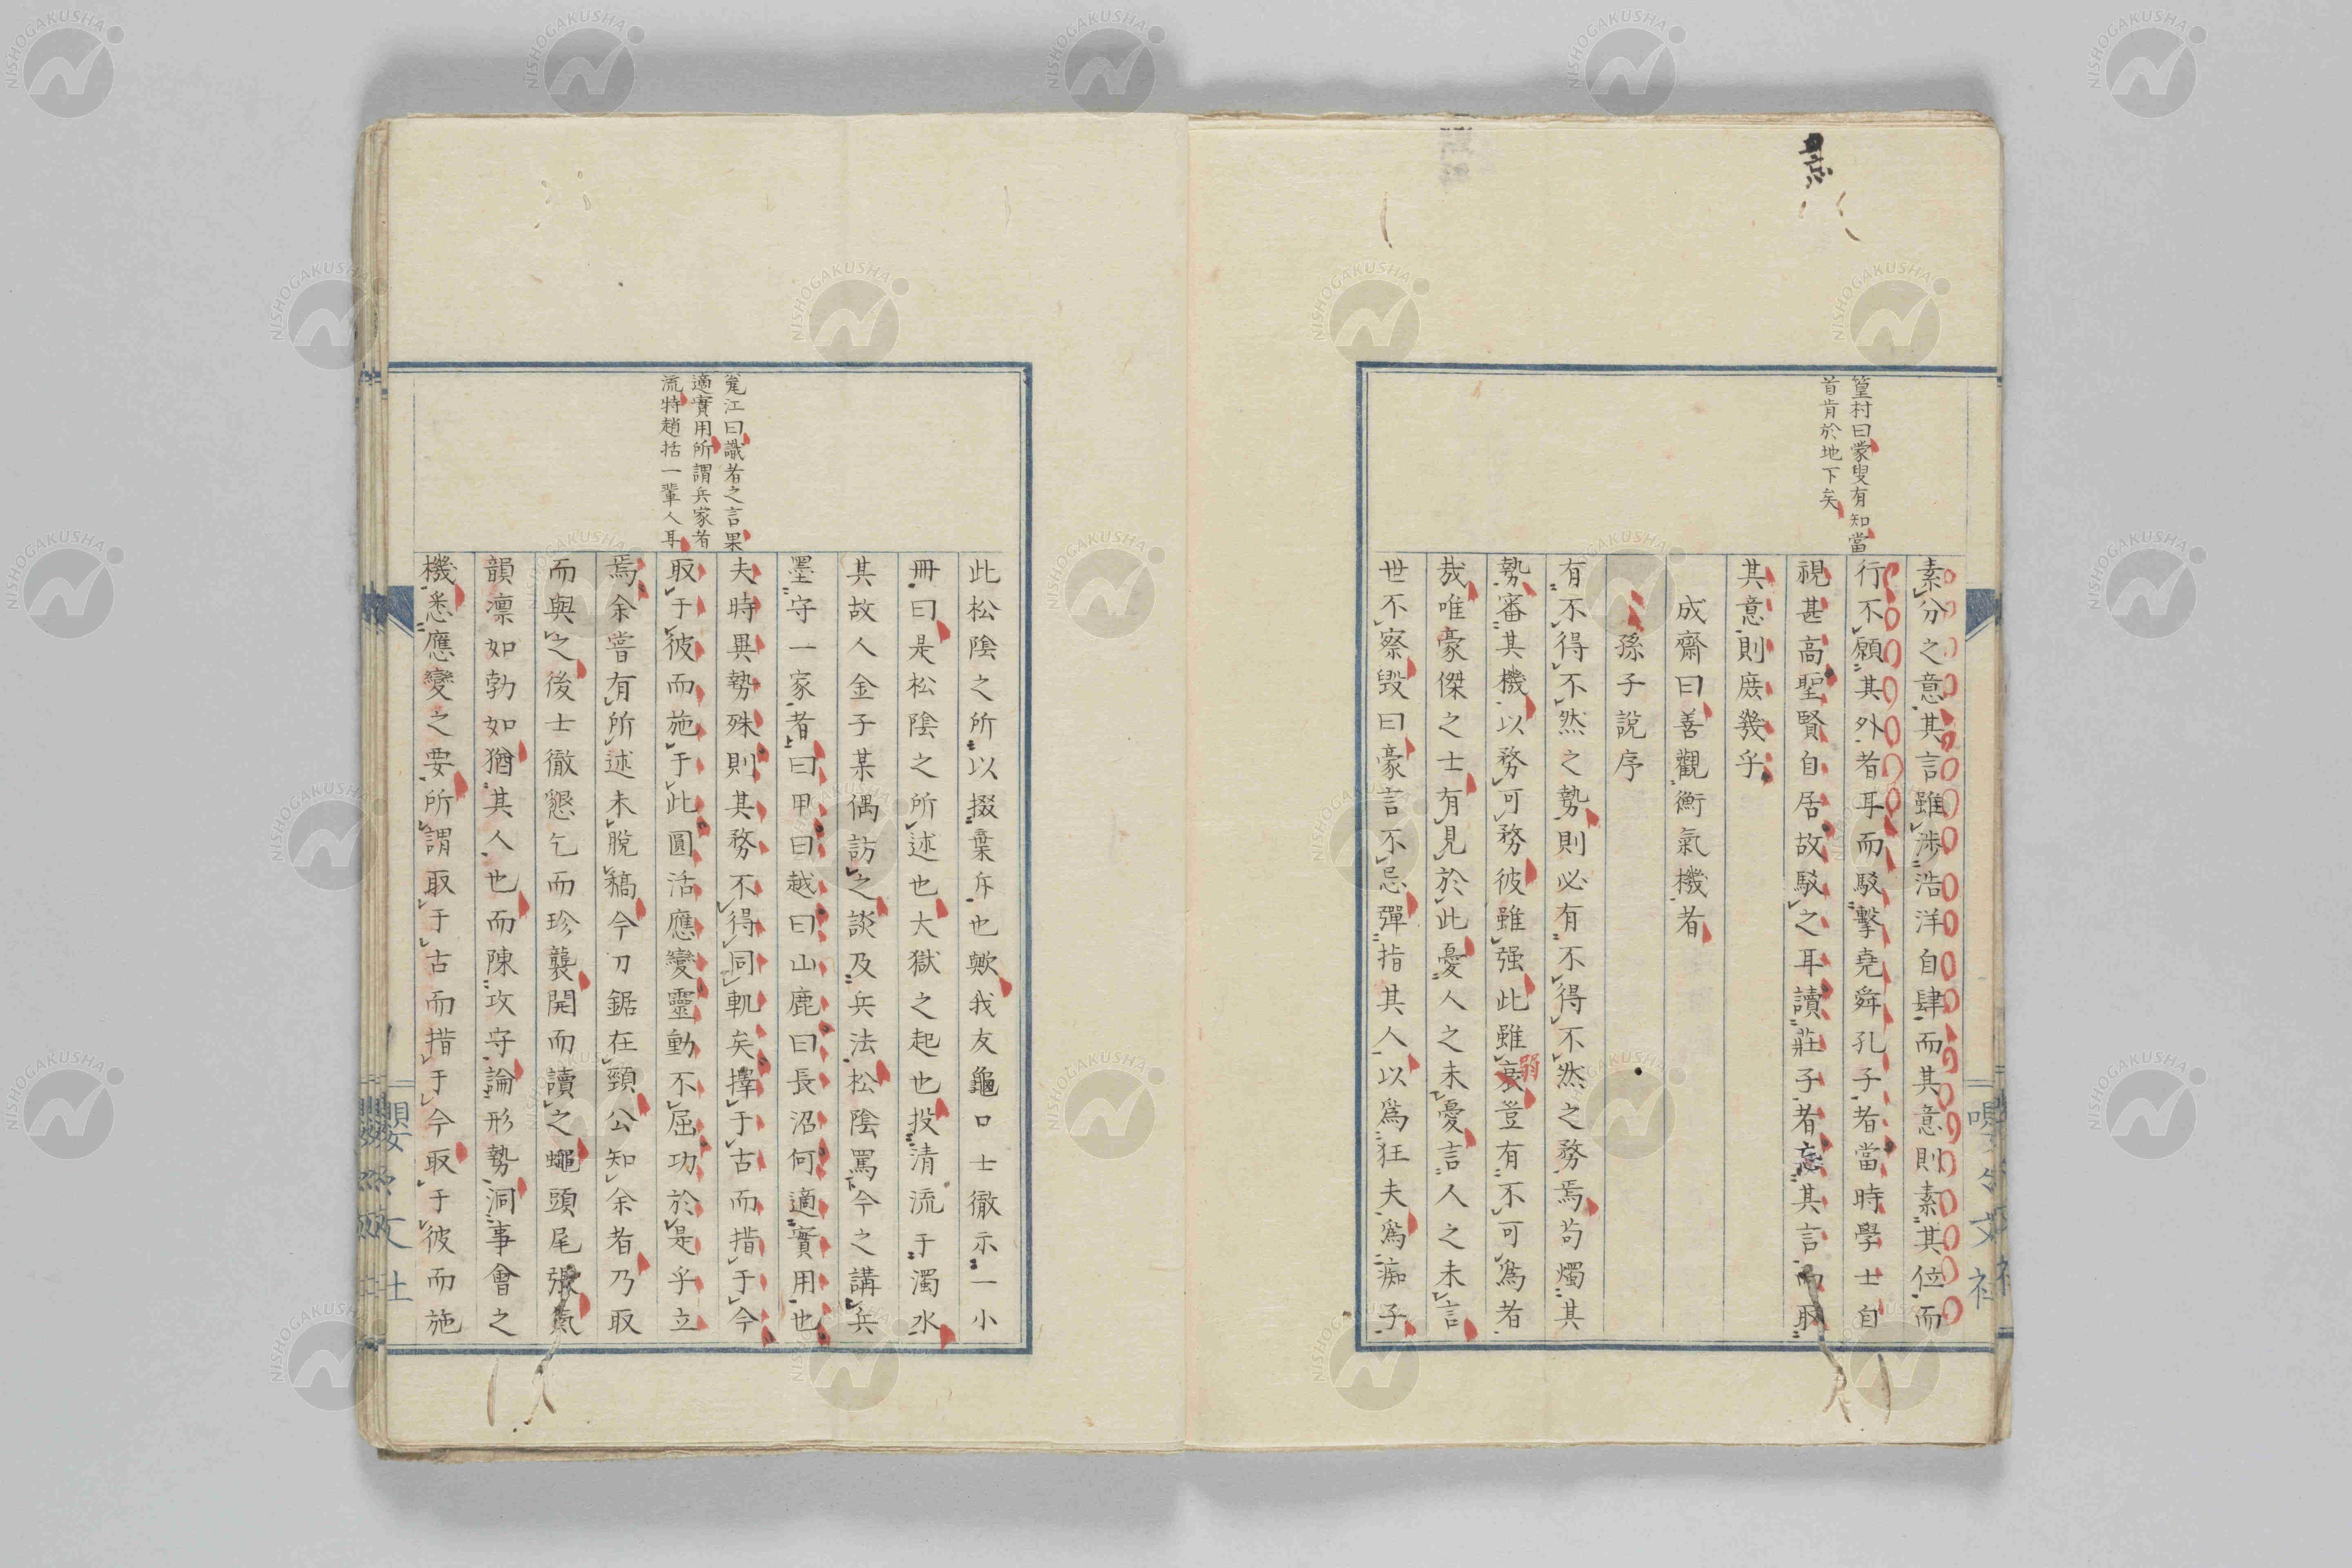 篁村曰蒙叟有知當
首肯於地下矣
素分之意其言雖涉浩洋自肆而其意則素其位而
行不願其外者耳而駁擊堯舜孔子者當時學士自
視甚高聖賢自居故駁之耳讀莊子者忘其言而取
其意則庶幾乎
成齋曰善觀衡氣機者
孫子說序
有不得不然之勢則必有不得不然之務焉苟燭其
勢審其機以務可務彼雖强此雖衰豈有不可爲者
弱
哉唯豪傑之士有見於此憂人之未憂言人之未言
世不察毀曰豪言不忌彈指其人以爲狂夫爲痴子
嚶々文社
此松陰之所以掇棄斥也歟我友龜口士徹示一小
冊曰是松陰之所述也大獄之起也投清流于濁水
其故人金子某偶訪之談及兵法松陰罵今之講兵
墨守一家者曰甲曰越曰山鹿曰長沼何適實用也
夫時異勢殊則其務不得同軌矣擇于古而措于今
取于彼而施于此圓活應變靈動不屈功於是乎立
焉余嘗有所述未脫稿今刀鋸在頸公知余者乃取
而與之後士徹懇乞而珍襲開而讀之蠅頭尾張氣
韻凛如勃如猶其人也而陳攻守論形勢洞事會之
機悉應變之要所謂取于古而措于今取于彼而施
毚江曰識者之言果
適實用所謂兵家者
流特趙括一輩人耳
NISHOGAKUSHA